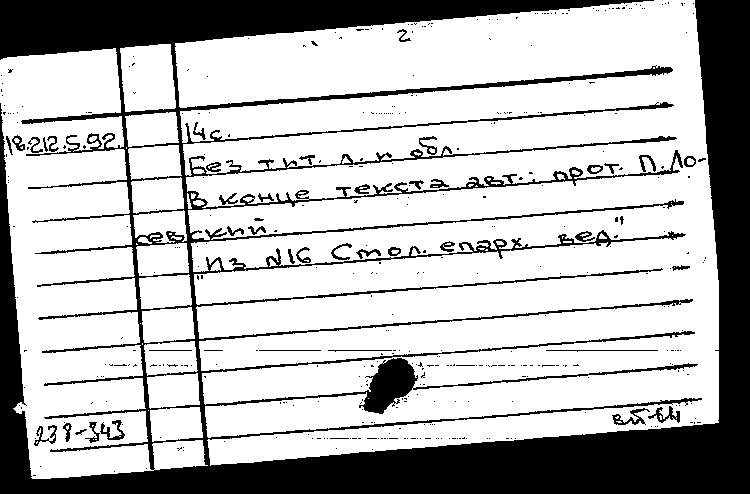 2
18.212.5.92.
14с.
Без тит. л. и обл.
В конце текста авт.: прот. П. Ло-
севский.
"Из №16 Стол. епарх. вед."
238-343